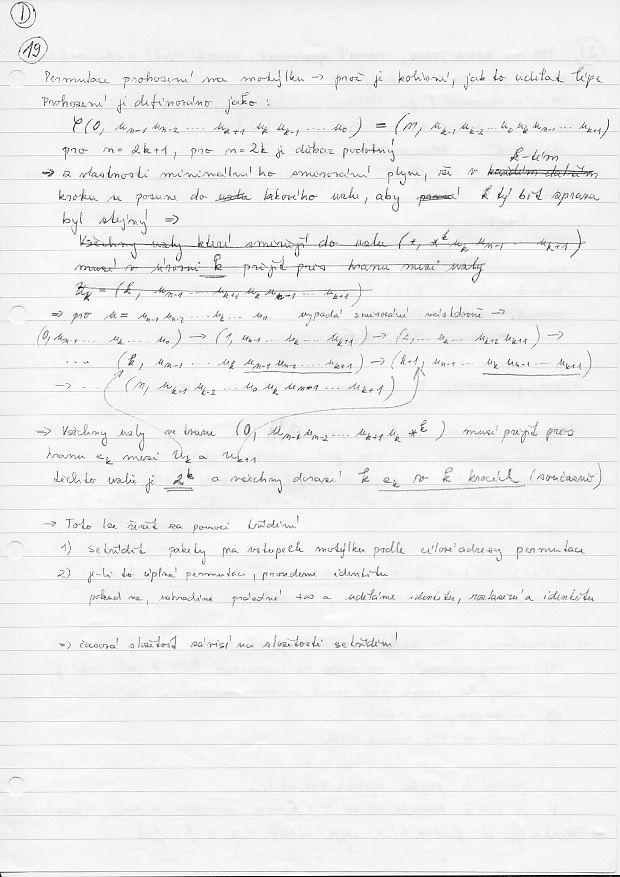 1
19
Permutace prohození na motýlku → proč je kolizní, jak to udělat lépe
Prohození je definováno jako:
φ(0, u_{n-1} u_{n-2} .... u_{k+1} u_k u_{k-1} ... u_0) = (n, u_{k-1} u_{k-2} ... u_0 u_k u_{n-1} ... u_{k+1})
pro n = 2k+1, pro n = 2k je důkaz podobný
⇒ z vlastnosti minimálního směrování plyne, že v každém dalším k-tém
kroku se posune do uzlu takového uzlu, aby k tý bit zprava
byl stejný ⇒
Všechny uzly které směrují do uzlu (*, *^k u_k u_{n-1} ... u_{k+1})
musí v úrovni k projít přes hranu mezi uzly
u_k = (k, u_{n-1} ... u_{k+1} u_k u_{n-1} ... u_{k+1})
⇒ pro u = u_{n-1} u_{n-2} ... u_0 vypadá směrování následovně →
(0, u_{n-1} ... u_k ... u_0) → (1, u_{n-1} ... u_k ... u_{k+1}) → (2, ... u_k ... u_{k+2} u_{k+1}) →
... (k, u_{n-1} ... u_k u_{n-1} u_{n-2} ... u_{k+1}) → (k+1, u_{n-1} ... u_k u_{n-1} ... u_{k+1})
→ ... (n, u_{k-1} u_{k-2} ... u_0 u_k u_{n-1} ... u_{k+1})
⇒ Všechny uzly ve tvaru (0, u_{n-1} u_{n-2} ... u_{k+1} u_k *^k) musí projít přes
hranu e_k mezi u_k a u_{k+1}
těchto uzlů je 2^k a všechny dorazí k e_k po k krocích (současně)
→ Toto lze řešit za pomoci třídění
1) setřídit pakety na vstupech motýlku podle cílové adresy permutace
2) je-li to úplná permutace, provedeme identitu
pokud ne, nahradíme prázdné +∞ a uděláme identitu, roztažení a identitu
⇒ časová složitost závisí na složitosti setřídění